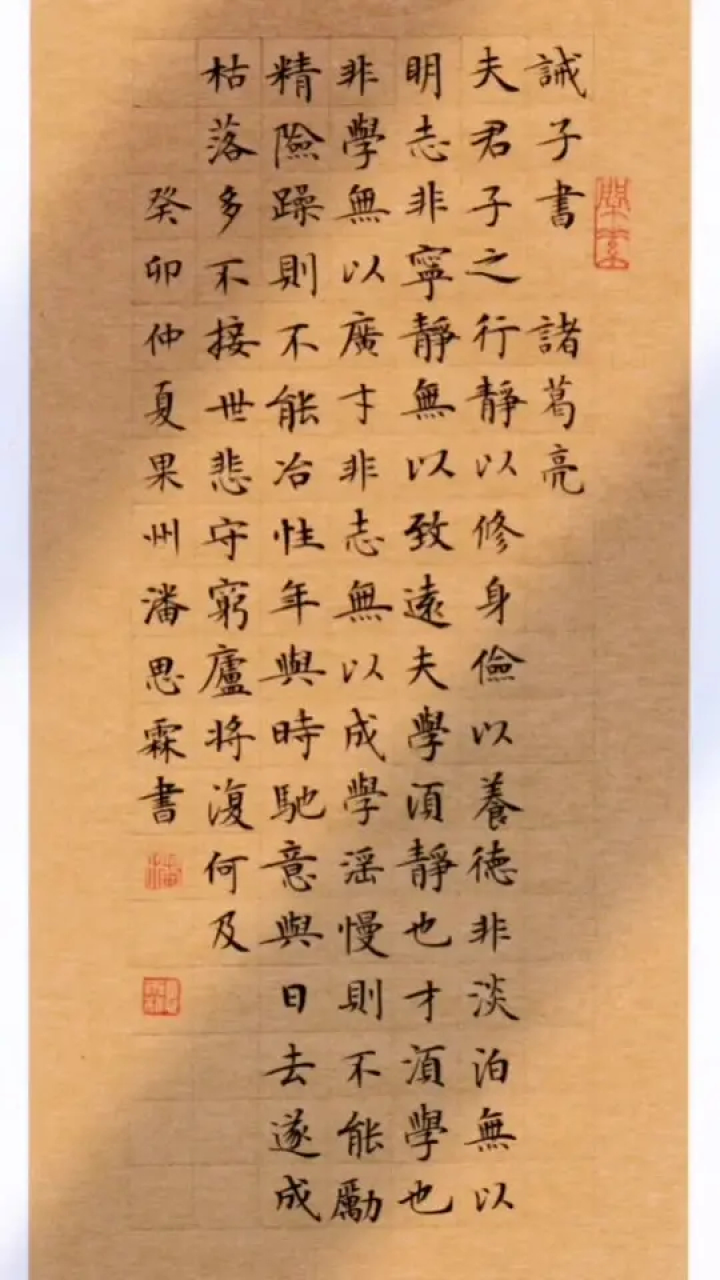 誡子書 諸葛亮
夫君子之行靜以修身儉以養德非淡泊無以
明志非寧靜無以致遠夫學須靜也才須學也
非學無以廣才非志無以成學滛慢則不能勵
精險躁則不能冶性年與時馳意與日去遂成
枯落多不接世悲守窮廬將復何及
癸卯仲夏果州潘思霖書